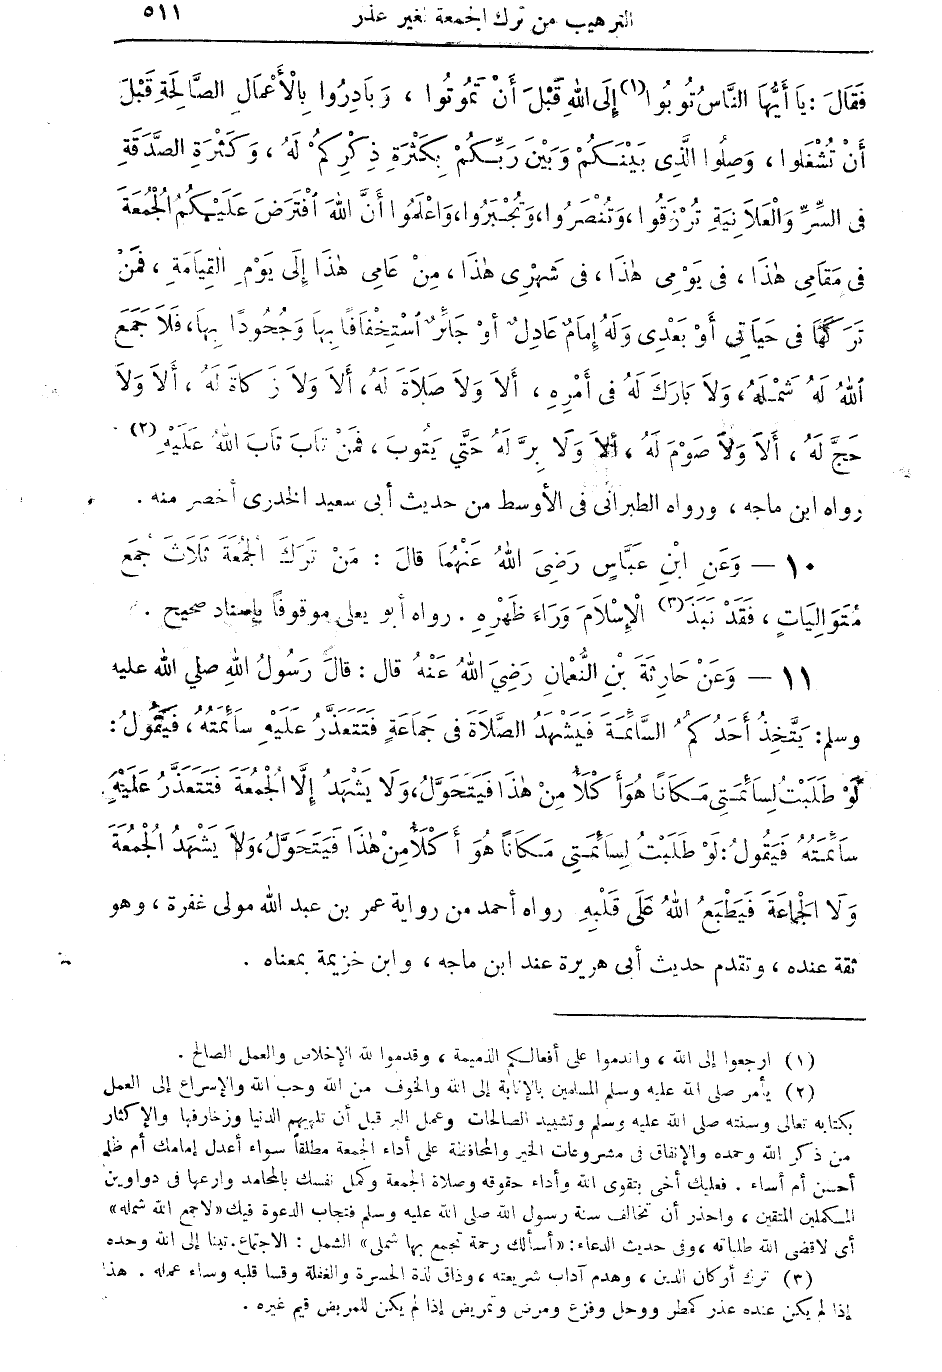 الترهيب من ترك الجمعة لغير عذر ٥١١
فَقَالَ : يَا أَيُّهَا النَّاسُ تُوبُوا (١) إِلَى اللهِ قَبْلَ أَنْ تَمُوتُوا ، وَبَادِرُوا بِالْأَعْمَالِ الصَّالِحَةِ قَبْلَ
أَنْ تُشْغَلُوا ، وَصِلُوا الَّذِى بَيْنَكُمْ وَبَيْنَ رَبِّكُمْ بِكَثْرَةِ ذِكْرِكُمْ لَهُ ، وَكَثْرَةِ الصَّدَقَةِ
فِى السِّرِّ وَالْعَلاَنِيَةِ تُرْزَقُوا ، وَتُنْصَرُوا ، وَتُجْبَرُوا ، وَاعْلَمُوا أَنَّ اللهَ افْتَرَضَ عَلَيْكُمُ الْجُمُعَةَ
فِى مَقَامِى هٰذَا ، فِى يَوْمِى هٰذَا ، فِى شَهْرِى هٰذَا ، مِنْ عَامِى هٰذَا إِلَى يَوْمِ الْقِيَامَةِ ، فَمَنْ
تَرَكَهَا فِى حَيَاتِى أَوْ بَعْدِى وَلَهُ إِمَامٌ عَادِلٌ أَوْ جَائِرٌ اسْتِخْفَافًا بِهَا وَجُحُودًا بِهَا ، فَلاَ جَمَعَ
اللهُ لَهُ شَمْلَهُ ، وَلاَ بَارَكَ لَهُ فِى أَمْرِهِ ، أَلاَ وَلاَ صَلاَةَ لَهُ ، أَلاَ وَلاَ زَكَاةَ لَهُ ، أَلاَ وَلاَ
حَجَّ لَهُ ، أَلاَ وَلاَ صَوْمَ لَهُ ، أَلاَ وَلَا بِرَّ لَهُ حَتَّى يَتُوبَ ، فَمَنْ تَابَ تَابَ اللهُ عَلَيْهِ (٢)
رواه ابن ماجه ، ورواه الطبرانى فى الأوسط من حديث أبى سعيد الخدرى أخصر منه .
١٠ — وَعَنِ ابْنِ عَبَّاسٍ رَضِىَ اللهُ عَنْهُمَا قَالَ : مَنْ تَرَكَ الْجُمُعَةَ ثَلَاثَ جُمَعٍ
مُتَوَالِيَاتٍ ، فَقَدْ نَبَذَ (٣) الْإِسْلَامَ وَرَاءَ ظَهْرِهِ . رواه أبو يعلى موقوفاً بإسناد صحيح .
١١ — وَعَنْ حَارِثَةَ بْنِ النُّعْمَانِ رَضِىَ اللهُ عَنْهُ قال : قَالَ رَسُولُ اللهِ صلي الله عليه
وسلم : يَتَّخِذُ أَحَدُكُمُ السَّائِمَةَ فَيَشْهَدُ الصَّلَاةَ فِى جَمَاعَةٍ فَتَتَعَذَّرُ عَلَيْهِ سَائِمَتُهُ ، فَيَقُولُ :
لَوْ طَلَبْتُ لِسَائِمَتِى مَكَانًا هُوَ أَكْلَأُ مِنْ هٰذَا فَيَتَحَوَّلُ ، وَلَا يَشْهَدُ إِلَّا الْجُمُعَةَ فَتَتَعَذَّرُ عَلَيْهِ
سَائِمَتُهُ فَيَقُولُ : لَوْ طَلَبْتُ لِسَائِمَتِى مَكَانًا هُوَ أَكْلَأُ مِنْ هٰذَا فَيَتَحَوَّلُ ، وَلاَ يَشْهَدُ الْجُمُعَةَ
وَلَا الْجَمَاعَةَ فَيَطْبَعُ اللهُ عَلَى قَلْبِهِ رواه أحمد من رواية عمر بن عبد الله مولى غفرة ، وهو
ثقة عنده ، وتقدم حديث أبى هريرة عند ابن ماجه ، وابن خزيمة بمعناه .
(١) ارجعوا إلى الله ، واندموا على أفعالكم الذميمة ، وقدموا لله الإخلاص والعمل الصالح .
(٢) يأمر صلى الله عليه وسلم المسلمين بالإنابة إلى الله والخوف من الله وحب الله والإسراع إلى العمل
بكتابه تعالى وسنته صلى الله عليه وسلم وتشييد الصالحات وعمل البر قبل أن تلهيهم الدنيا وزخارفها والإكثار
من ذكر الله وحمده والإنفاق فى مشروعات الخير والمحافظة على أداء الجمعة مطلقاً سواء أعدل إمامك أم ظلم
أحسن أم أساء . فعليك أخى بتقوى الله وأداء حقوقه وصلاة الجمعة وكمل نفسك بالمحامد وارعها فى دواوين
المكملين المتقين ، واحذر أن تخالف سنة رسول الله صلى الله عليه وسلم فتجاب الدعوة فيك «لاجمع الله شمله»
أى لاقضى الله طلباته ، وفى حديث الدعاء : «أسألك رحمة تجمع بها شملى» الشمل : الاجتماع . تبنا إلى الله وحده
(٣) ترك أركان الدين ، وهدم آداب شريعته ، وذاق لذة الحسرة والغفلة وقسا قلبه وساء عمله . هذا
إذا لم يكن عنده عذر كمطر ووحل وفزع ومرض وتمريض إذا لم يكن للمريض قيم غيره .